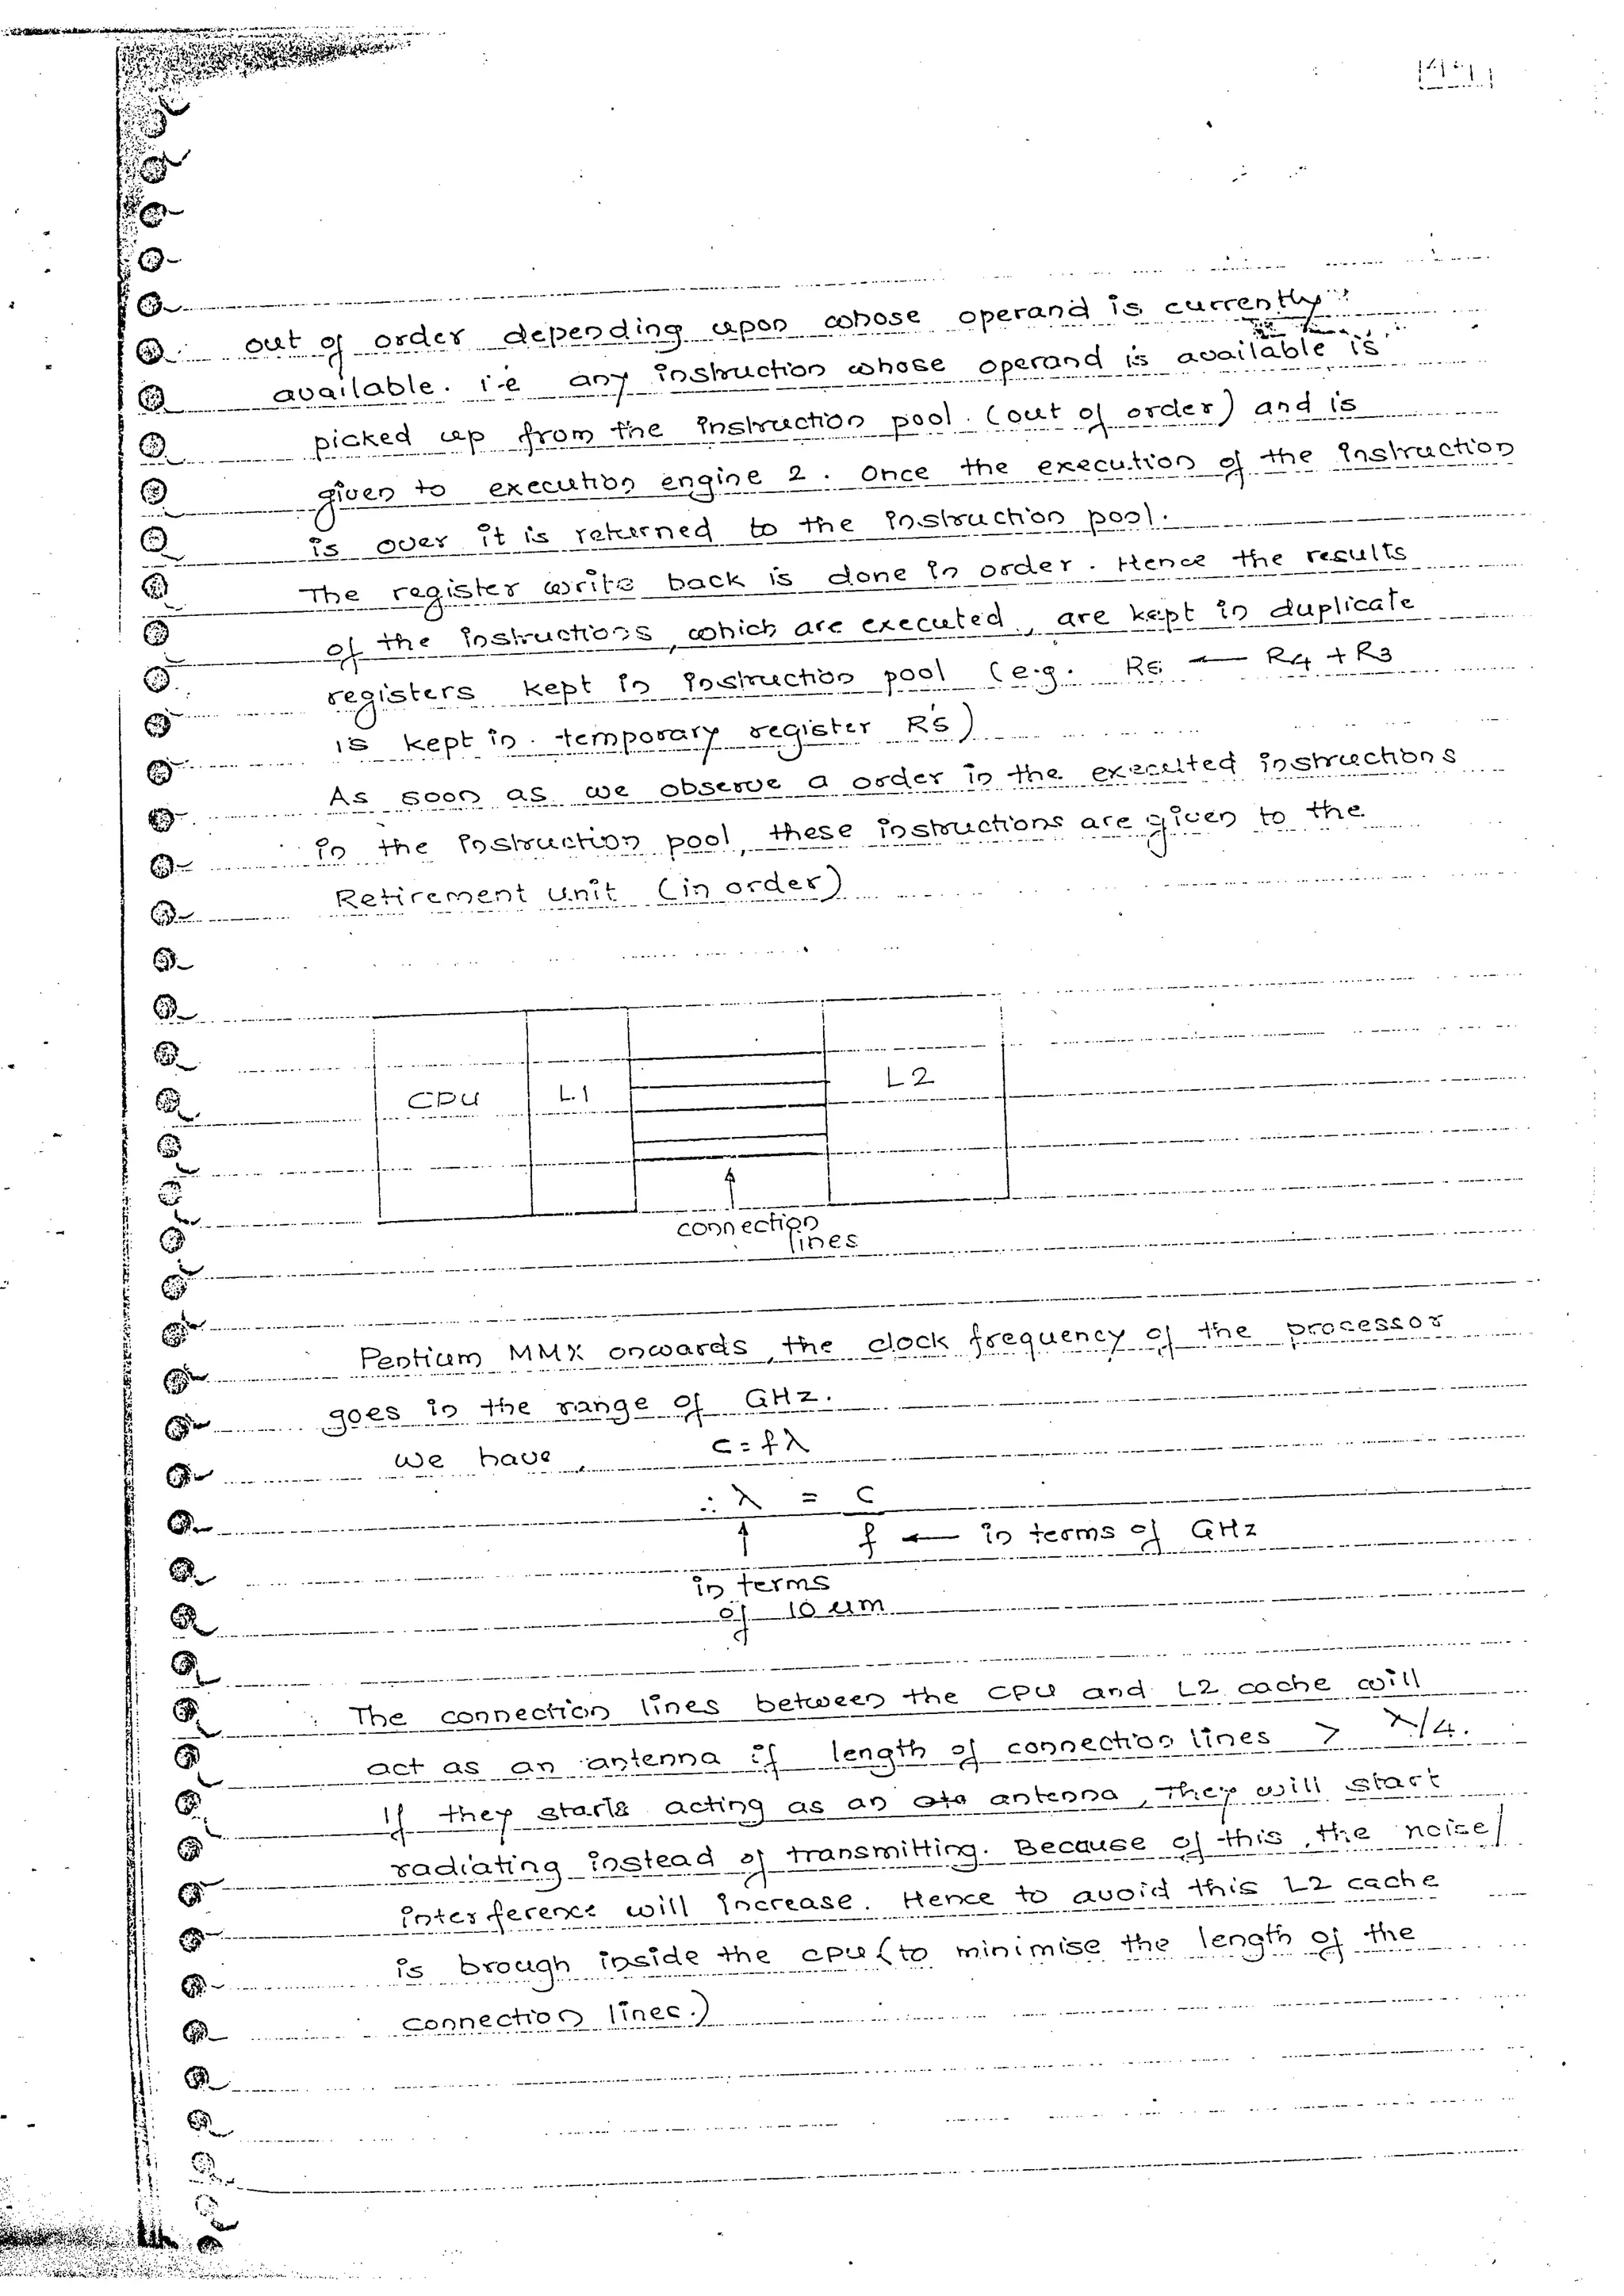 out of order depending upon whose operand is currently
available. i.e any instruction whose operand is available is
picked up from the instruction pool. (out of order) and is
given to execution engine 2. Once the execution of the instruction
is over it is returned to the instruction pool.
The register write back is done in order. Hence the results
of the instructions, which are executed, are kept in duplicate
registers kept in instruction pool (e.g. R5 ← R4 + R3
is kept in temporary register R'5)
As soon as we observe a order in the executed instructions
in the instruction pool, these instructions are given to the
Retirement Unit (in order)
CPU L1 L2
connection
lines
Pentium MMX onwards, the clock frequency of the processor
goes in the range of GHz.
We have, c = fλ
∴ λ = c
f ← in terms of GHz
in terms
of 10 um
The connection lines between the CPU and L2 cache will
act as an antenna if length of connection lines > λ/4.
If they starts acting as an antenna, They will start
radiating instead of transmitting. Because of this, the noise/
interference will increase. Hence to avoid this L2 cache
is brough inside the CPU (to minimise the length of the
connection lines.)